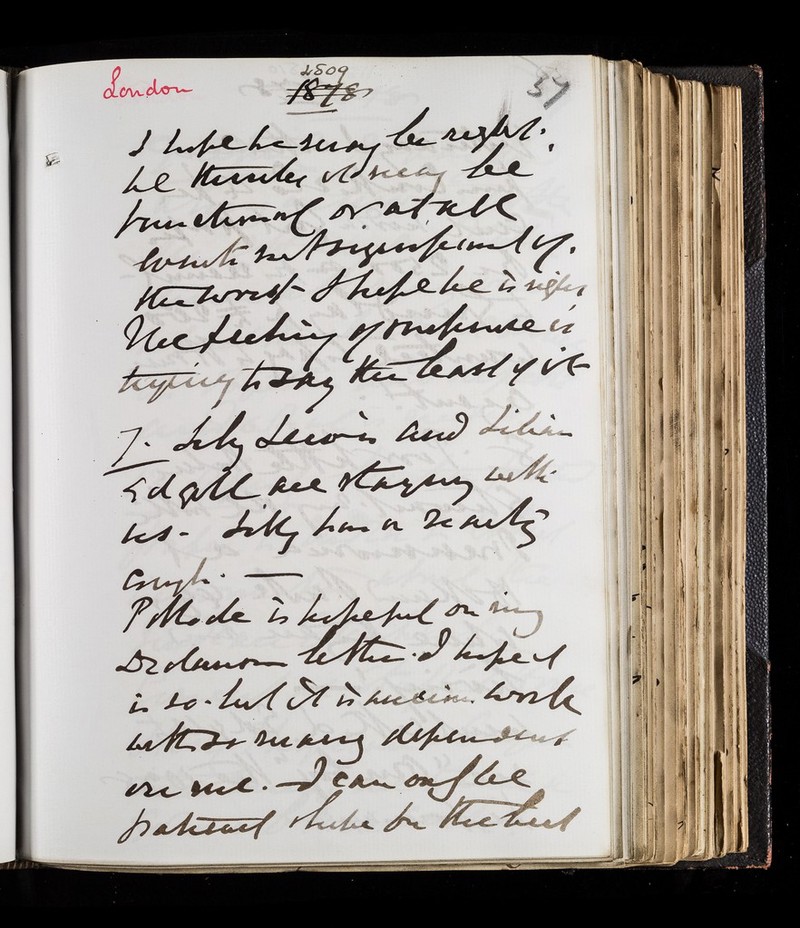 London
2509
1878
37
I hope he may be right.
he thinks it may be
functional or at all
events not significant of
the worst - I hope he is right
The feeling of suspense is
trying to say the least of it
7. Lily Lewis and Lilian
Edgall are staying with
us - Lilly has a
cough. —
P. Mode is hopeful on my
letter. I hope it
is so - but it is anxious work
with so many dependent
on me. - I can only be
patient & hope for the best